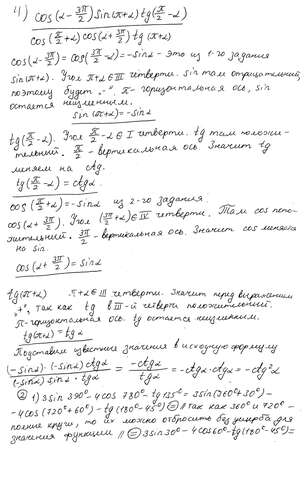 4) cos(α-3π/2) sin(π+α) tg(π/2-α)
cos(π/2+α) cos(α+3π/2) tg(π+α)
cos(α-3π/2) = cos(3π/2-α) = -sinα - это из 1-го задания
sin(π+α). Угол π+α ∈ III четверти. sin там отрицательный,
поэтому будет „-". π- горизонтальная ось, sin
остается неизменным.
sin(π+α) = -sinα
tg(π/2-α). Угол π/2-α ∈ I четверти. tg там положи-
тельный. π/2 - вертикальная ось. Значит tg
меняем на ctg.
tg(π/2-α) = ctgα
cos(π/2+α) = -sinα из 2-го задания
cos(α+3π/2). Угол (3π/2+α) ∈ IV четверти. Там cos поло-
жительный. 3π/2 - вертикальная ось. Значит cos меняем
на sin.
cos(α+3π/2) = sinα
tg(π+α) π+α ∈ III четверти. Значит перед выражением
„+", так как tg в III-й четверти положительный.
π-горизонтальная ось. tg остается неизменным.
tg(π+α) = tgα
Подставим известные значения в исходную формулу
(-sinα)·(-sinα) ctgα / (-sinα) sinα · tgα = -ctgα / tgα = -ctgα·ctgα = -ctg²α
② 1) 3sin 390° - 4cos 780° - tg 135° = 3sin(360°+30°) -
-4cos(720°+60°) - tg(180°-45°) = // так как 360° и 720° -
полные круги, то их можно отбросить без ущерба для
значения функции // = 3sin30° - 4cos60° - tg(180°-45°) =